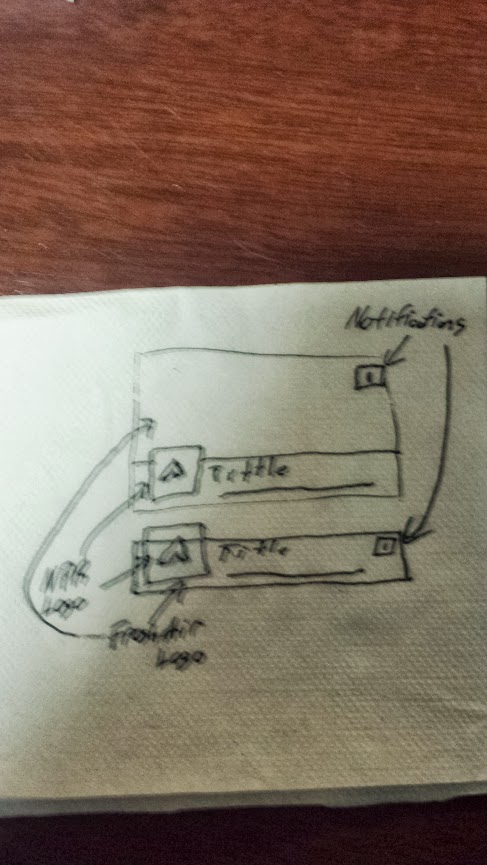 Notifications
Tittle
Tittle
Logo
Fresh Air
Logo